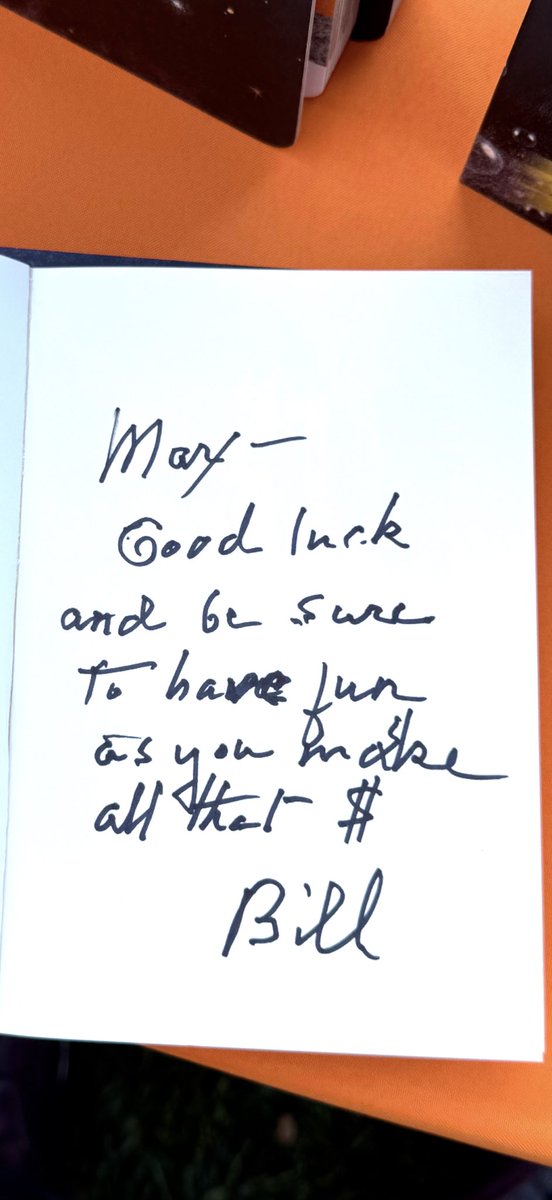 Max —
Good luck
and be sure
to have fun
as you make
all that $
Bill